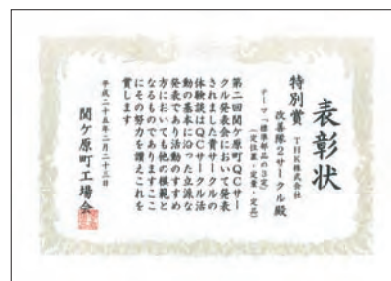 表彰状
特別賞
THK株式会社
改善隊2サークル殿
テーマ「標準部品の3定」
(定位置・定量・定品)
第二回関ケ原町QCサー
クル発表会において発表
されました貴サークルの
体験談はQCサークル活
動の基本に沿った立派な
発表であり活動のすすめ
方においても他の模範と
なるものでありますここ
にその努力を讃えこれを
賞します
平成二十五年二月二十三日
関ケ原町工場会